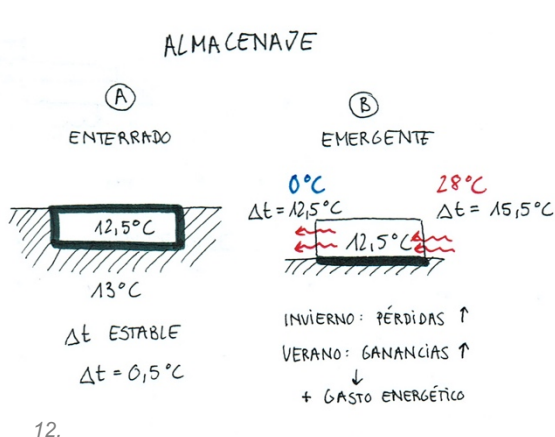 ALMACENAJE
A
ENTERRADO
12,5°C
13°C
Δt ESTABLE
Δt = 0,5°C
B
EMERGENTE
0°C
Δt = 12,5°C
28°C
Δt = 15,5°C
12,5°C
INVIERNO: PÉRDIDAS ↑
VERANO: GANANCIAS ↑
↓
+ GASTO ENERGÉTICO
12.